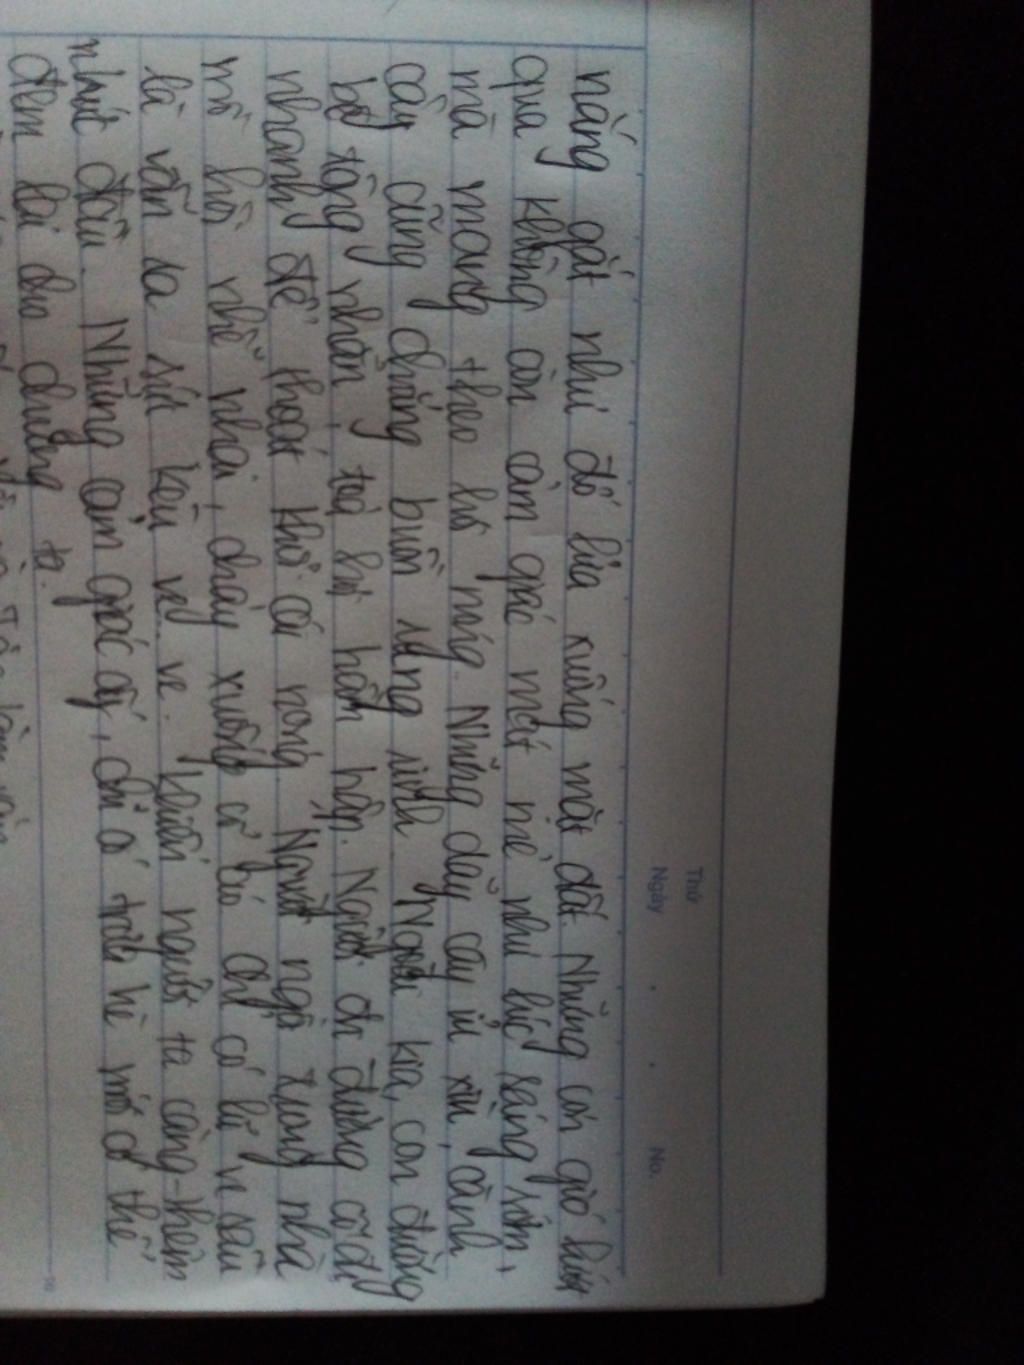 Thứ
Ngày . . No.
nắng gắt như đổ lửa xuống mặt đất. Những cơn gió lướt
qua không còn cảm giác mát mẻ như lúc sáng sớm,
mà mang theo hơi nóng. Những dãy cây ủ rũ, cành
cây cũng chẳng buồn rung rinh. Ngoài kia, con đường
bê tông nhẵn, toả hơi hầm hập. Người đi đường cố đi
nhanh để thoát khỏi cái nóng. Người ngợ trong nhà
mồ hôi nhễ nhại, chảy xuống cổ áo. chỉ có lũ ve sầu
là vẫn ra sức kêu ve.. ve. khiến người ta càng thêm
nhức đầu. Những cảm giác ấy, chỉ có trưa hè mới có thể
đem lại cho chúng ta.